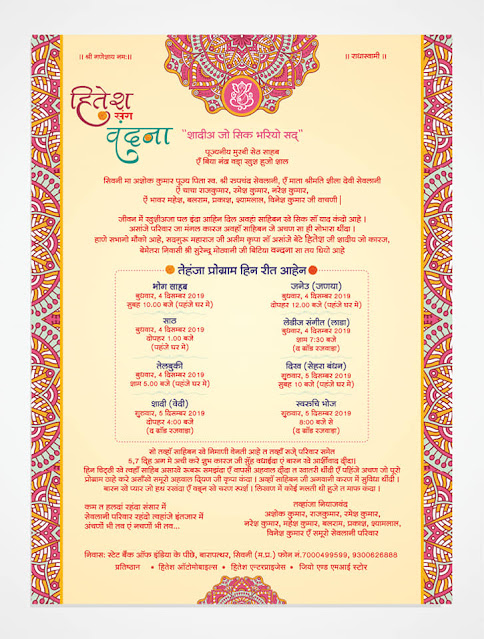 ॥ श्री गणेशाय नमः॥
॥ राधास्वामी ॥
हितेश
संग
वंदना
"शादीअ जो सिक भरियो सद्"
पूज्यनीय मुरबी सेठ साहब
एँ बिया नंढ वड़ा खुश हुजो शाल
सिवनी मां अशोक कुमार पूज्य पिता स्व. श्री रायचंद सेवलानी, एँ माता श्रीमति शीला देवी सेवलानी
एँ चाचा राजकुमार, रमेश कुमार, नरेश कुमार,
एँ भावर महेश, बलराम, प्रकाश, श्यामलाल, विनेश कुमार जी वाचणी |
जीवन में खुशीअजा पल इंदा आहिन दिल अवहां साहिबन खे सिक सां याद कंदी आहे ।
असांजे परिवार जा मंगल कारज अवहाँ साहिबन जे अचण सा ही सोभारा थींदा ।
हाणे सभागो मौको आहे, सतगुरू महाराज जी असीम कृपा साँ असांजे बेटे हितेश जी शादीय जो कारज,
बेमेतरा निवासी श्री सुरेन्दू मोठवानी जी बिटिया वन्दना सा तय थियो आहे
तेहंजा प्रोग्राम हिन रीत आहेन
भोग साहब
बुधवार, 4 दिसम्बर 2019
सुबह 10.00 बजे (पहंजे घर में)
जनेउ (जणया)
बुधवार, 4 दिसम्बर 2019
दोपहर 12.00 बजे (पहंजे घर में)
साठ
बुधवार, 4 दिसम्बर 2019
दोपहर 1.00 बजे
(पहंजे घर में)
लेडीज संगीत (लाडा)
बुधवार, 4 दिसम्बर 2019
शाम 7:30 बजे
(द बॉड रजवाड़ा)
तेलबुकी
बुधवार, 4 दिसम्बर 2019
शाम 5.00 बजे (पहंजे घर में)
दिख (सेहरा बंधन)
गुरुवार, 5 दिसम्बर 2019
सुबह 10 बजे (पहंजे घर में)
शादी (वेदी)
गुरुवार, 5 दिसम्बर 2019
दोपहर 4:00 बजे
(द बॉड रजवाड़ा)
स्वरुचि भोज
गुरुवार, 5 दिसम्बर 2019
8:00 बजे से
(द बॉड रजवाड़ा)
सो तव्हाँ साहिबन खे निमाणी वेनती आहे त तव्हाँ सजे परिवार समेत
हिन चिट्ठी खे त्व्हां साहिब असांखे रूबरू समझंदा एँ वापसी अहवाल दींदा त खातरी थींदी एँ पहिंजे अचण जो पूरी
प्रोग्राम ठाहे करे असाँखे समूरी अहवाल दियण जी कृपा कंदा । अव्हां साहिबन जी अगवानी करण में सुविधा थींदी ।
बारन खे प्यार जो हथ रखंदा एँ वड्न खे चरण स्पर्श । लिखण में कोई गलती थी हुजे त माफ कंदा ।
कम त हलदां रहंदा संसार में
सेवलानी परिवार रहंदो त्वहांजे इंतजार में
अंचणी भी तव एं नचणी भी तव...
तव्हांजा नियाजवंद
अशोक कुमार, राजकुमार, रमेश कुमार,
नरेश कुमार, महेश कुमार, बलराम, प्रकाश, श्यामलाल,
विनेश कुमार एँ समूरो सेवलानी परिवार
निवासः स्टेट बैंक ऑफ इंडिया के पीछे, बारापत्थर, सिवनी (म.प्र.) फोन नं.7000499599, 9300626888
प्रतिष्ठान • हितेश ऑटोमोबाइल्स • हितेश एन्टरप्राइजेस • जियो एण्ड एमआई स्टोर